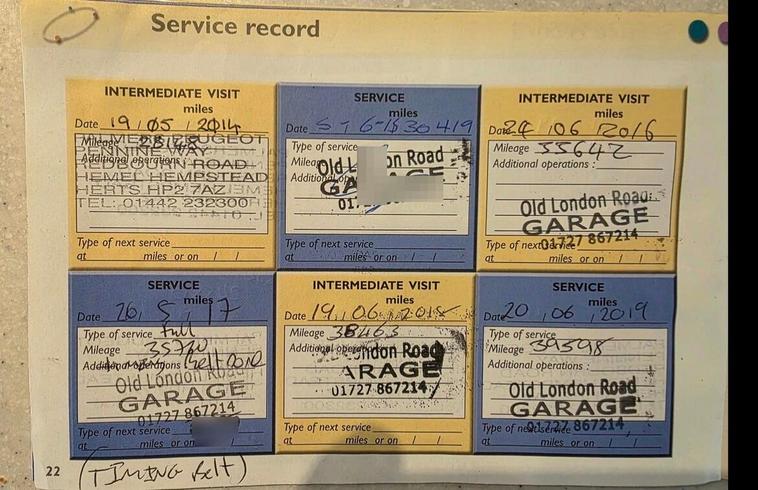 Service record
INTERMEDIATE VISIT
miles
Date 19 / 05 / 2014
Mileage 28148
Additional operations :
PALMER PEUGEOT
PENNINE WAY
REDBOURN ROAD
HEMEL HEMPSTEAD
HERTS HP2 7AZ
TEL: 01442 232300
Type of next service
at miles or on / /
SERVICE
miles
Date 5 - 6 - 15 30 419
Type of service
Mileage
Old London Road
GARAGE
01
Type of next service
at miles or on / /
INTERMEDIATE VISIT
miles
Date 24 / 06 / 2016
Mileage 33642
Additional operations :
Old London Road
GARAGE
01727 867214
Type of next service
at miles or on / /
SERVICE
miles
Date 26 / 5 / 17
Type of service full
Mileage 35720
Additional operations Belt Done
Old London Road
GARAGE
01727 867214
Type of next service
at miles or on
INTERMEDIATE VISIT
miles
Date 19 / 06 / 2018
Mileage 38463
Additional
London Road
GARAGE
01727 867214
Type of next service
at miles or on / /
SERVICE
miles
Date 20 / 06 / 2019
Type of service
Mileage 39598
Additional operations :
Old London Road
GARAGE
01727 867214
Type of next service
at miles or on / /
22 (TIMING belt)